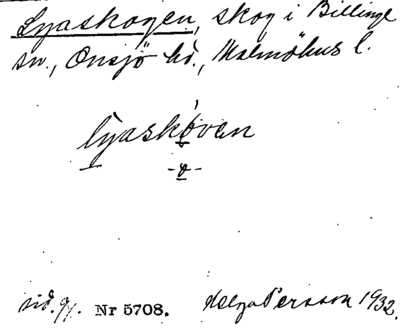 Lyaskogen, skog i Billinge
sn., Onsjö hd., Malmöhus l.
lyaskoven
-v-
sid. 91. Nr 5708. Helga Persson 1932.